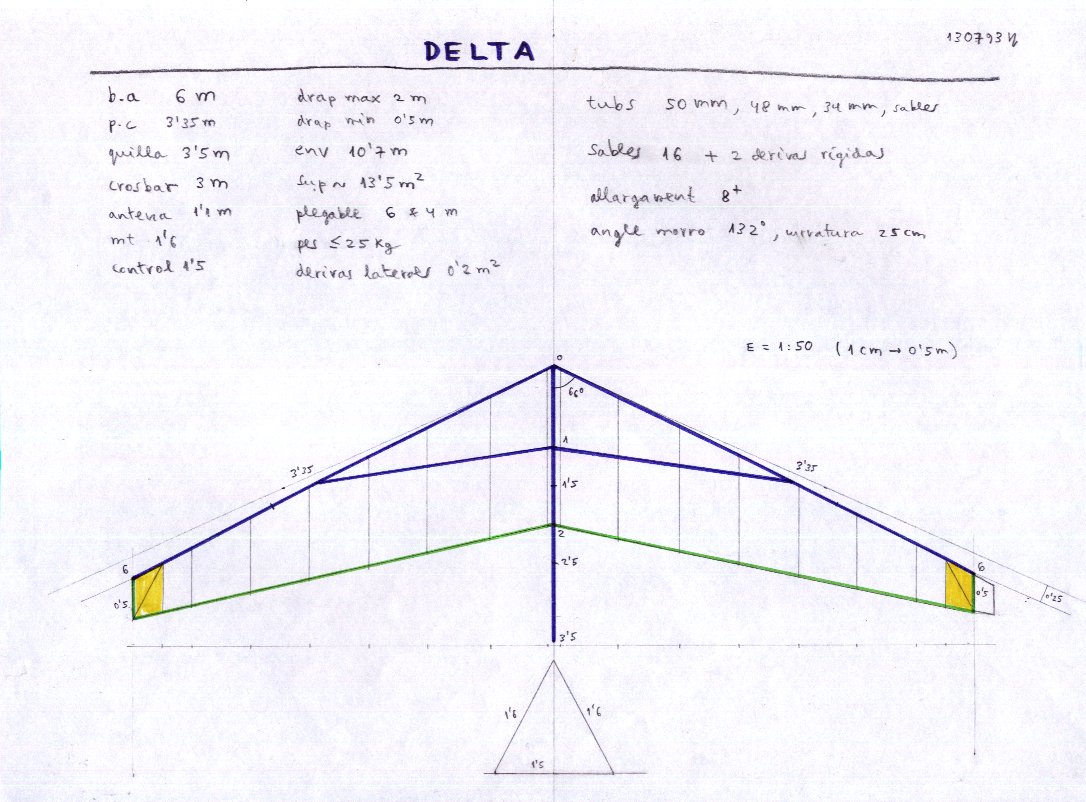 130793
DELTA
b.a 6 m
p.c 3'35 m
quilla 3'5 m
crosbar 3 m
antena 1'1 m
mt 1'6
control 1'5
drap max 2 m
drap min 0'5 m
env 10'7 m
sup ~ 13'5 m²
plegable 6 x 4 m
pes ≤ 25 Kg
derivas laterals 0'2 m²
tubs 50 mm, 48 mm, 34 mm, sables
sables 16 + 2 derivas rígidas
allargament 8+
angle morro 132°, curvatura 25 cm
E = 1:50 (1 cm → 0'5 m)
0
66°
1
3'35
3'35
1'5
2
2'5
6
6
0'5
0'5
0'25
3'5
1'6
1'6
1'5